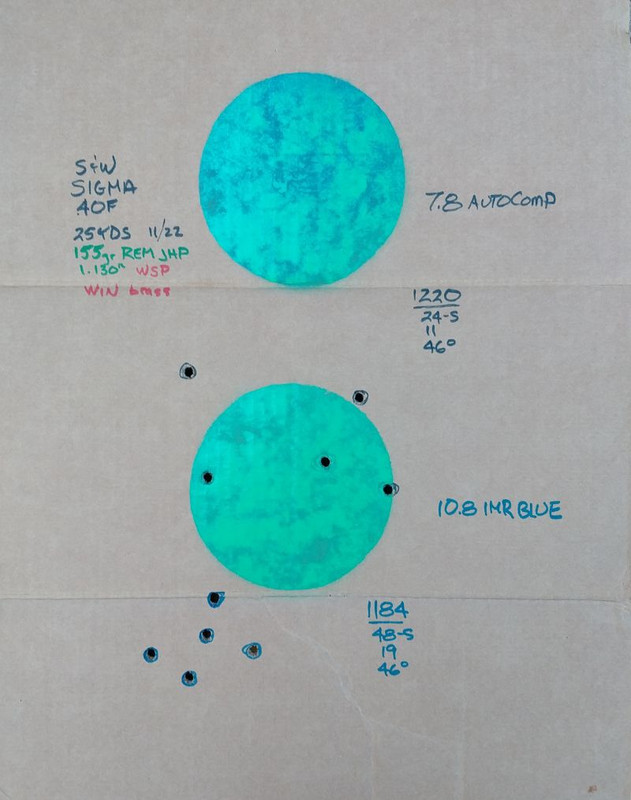 S&W
SIGMA
40F
25YDS 11/22
155gr REM JHP
1.130" WSP
WIN brass
7.8 AUTOCOMP
1220
24-S
11
46°
10.8 IMR BLUE
1184
48-S
19
46°